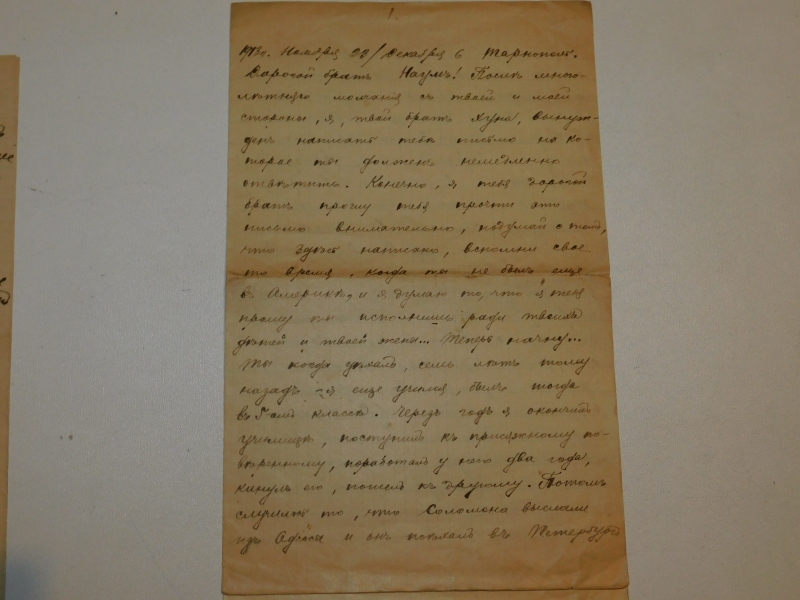 1.
Ноября 23/Декабря 6 Тарнополь.
Дорогой братъ Наумъ! Послѣ много-
лѣтняго молчанія съ твоей и моей
стороны, я, твой братъ вынуж-
денъ написать тебѣ письмо на ко-
торое ты долженъ немедленно
отвѣтить. Конечно, я тебя дорогой
братъ прошу тебя прочти это
письмо внимательно, подумай о томъ,
что здѣсь написано, вспомни свое
то время, когда ты не былъ еще
въ Америкѣ, и я думаю то, что я тебя
прошу ты исполнишь ради твоихъ
дѣтей и твоей жены... Теперь начну...
Ты когда уѣхалъ, семь лѣтъ тому
назадъ я еще учился, былъ тогда
въ 5-омъ классѣ. Черезъ годъ я окончилъ
училище, поступилъ къ присяжному по-
вѣренному, поработалъ у него два года,
кинулъ его, пошелъ къ другому. Потомъ
случилось то, что Соломона выслали
изъ Одессы и онъ поѣхалъ въ Петербургъ